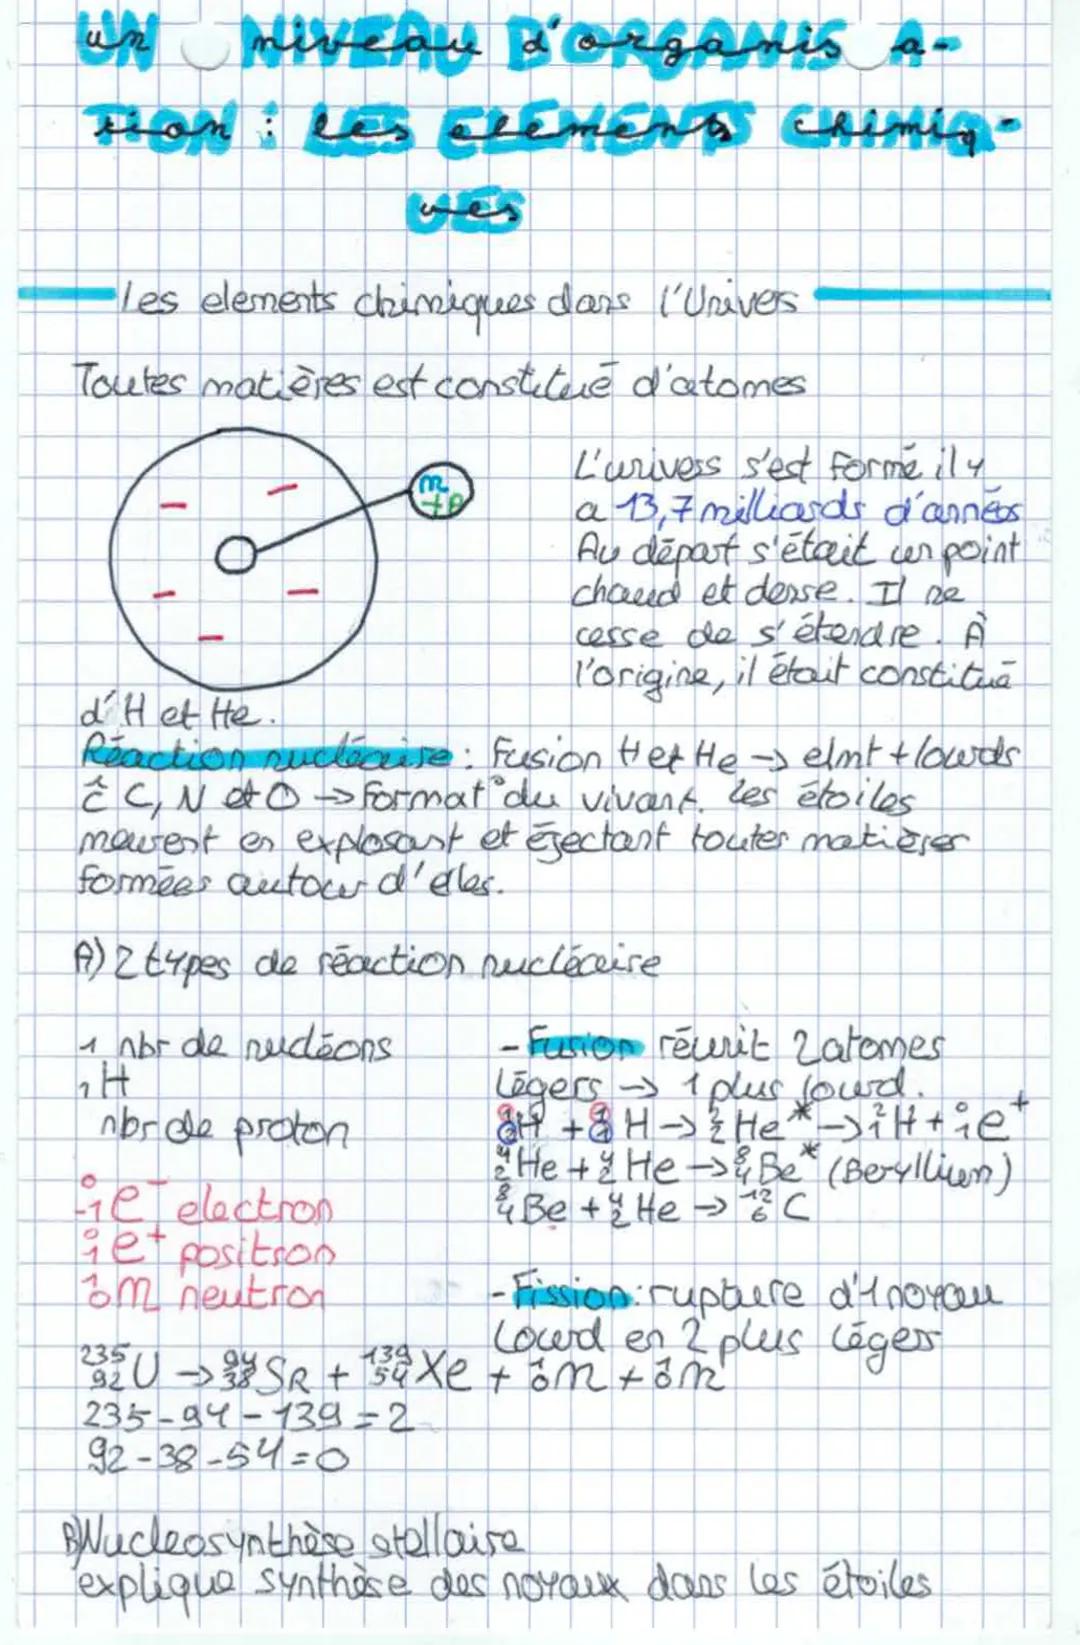 un niveau d'organisa-
tion : les elements chimiq-
ues
les elements chimiques dans l'Univers
Toutes matières est constitué d'atomes
n
+p
L'univers s'est formé il y
a 13,7 milliards d'années
Au départ s'était un point
chaud et dense. Il ne
cesse de s'étendre. À
l'origine, il était constitué
d'H et He.
Réaction nucléaire : Fusion H et He → elmt + lourds
ĉ C, N et O → format° du vivant. Les étoiles
meurent en explosant et éjectant toutes matières
formées autour d'elles.
A) 2 types de réaction nucléaire
1 nbr de nucléons
₁H
nbr de proton
⁰₋₁e⁻ electron
⁰₁e⁺ positron
¹₀n neutron
- Fusion réunit 2 atomes
légers → 1 plus lourd.
¹₁H + ¹₁H → ²₂He* → ²₁H + ⁰₁e⁺
⁴₂He + ⁴₂He → ⁸₄Be* (Beryllium)
⁸₄Be + ⁴₂He → ¹²₆C
- Fission : rupture d'1 noyau
lourd en 2 plus légers
²³⁵₉₂U → ⁹⁴₃₈SR + ¹³⁹₅₄Xe + ¹₀n + ¹₀n
235-94-139=2
92-38-54=0
B) Nucleosynthèse stellaire
explique synthèse des noyaux dans les étoiles